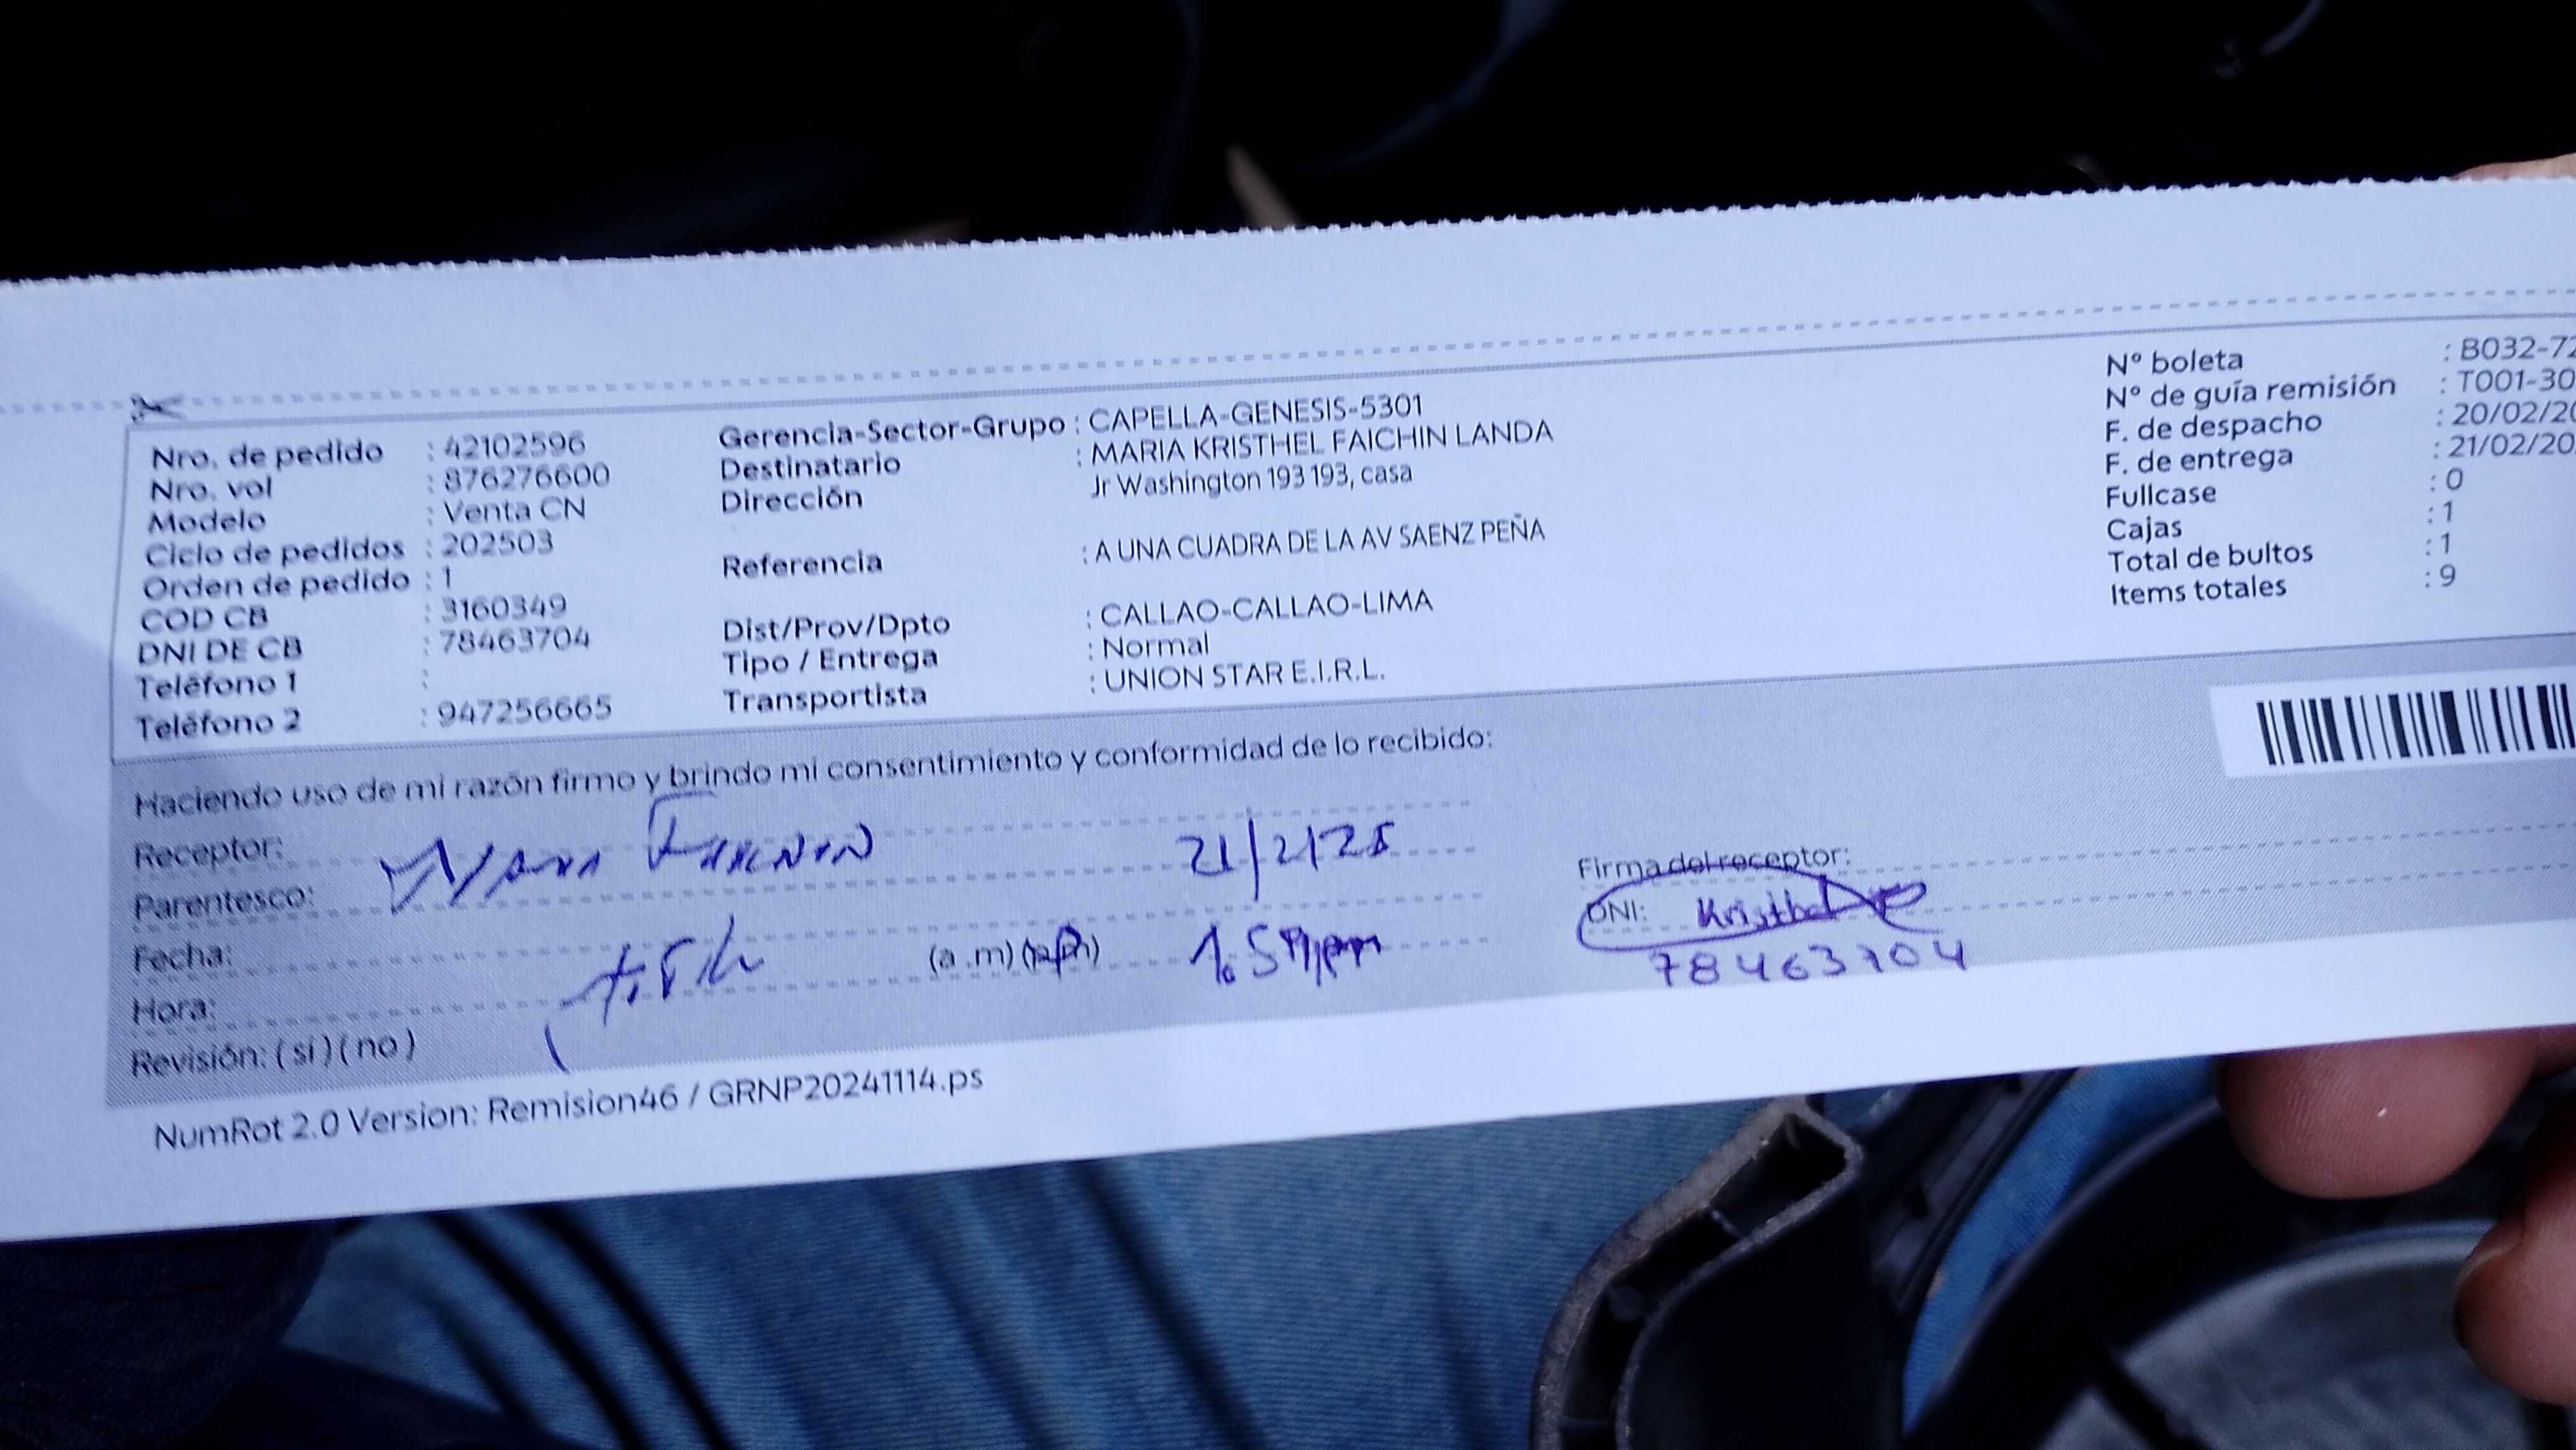 Nro. de pedido : 42102596
Nro. vol : 876276600
Modelo : Venta CN
Ciclo de pedidos : 202503
Orden de pedido : 1
COD CB : 3160349
DNI DE CB : 78463704
Teléfono 1 :
Teléfono 2 : 947256665
Gerencia-Sector-Grupo : CAPELLA-GENESIS-5301
Destinatario : MARIA KRISTHEL FAICHIN LANDA
Dirección Jr Washington 193 193, casa
Referencia : A UNA CUADRA DE LA AV SAENZ PEÑA
Dist/Prov/Dpto : CALLAO-CALLAO-LIMA
Tipo / Entrega : Normal
Transportista : UNION STAR E.I.R.L.
Nº boleta : B032-72
Nº de guía remisión : T001-30
F. de despacho : 20/02/20
F. de entrega : 21/02/20
Fullcase : 0
Cajas : 1
Total de bultos : 1
Items totales : 9
Haciendo uso de mi razón firmo y brindo mi consentimiento y conformidad de lo recibido:
Receptor:
Parentesco:
Fecha: 21/2/25
Hora: (a .m) 1.59pm
Revisión: ( sí ) ( no )
Firma del receptor:
DNI: Kristhel
78463704
NumRot 2.0 Version: Remision46 / GRNP20241114.ps